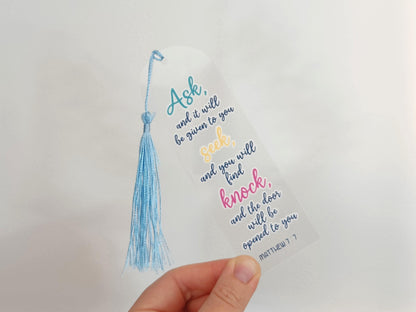 Ask,
and it will
be given to you
seek,
and you will
find
knock,
and the door
will be
opened to you
MATTHEW 7 7